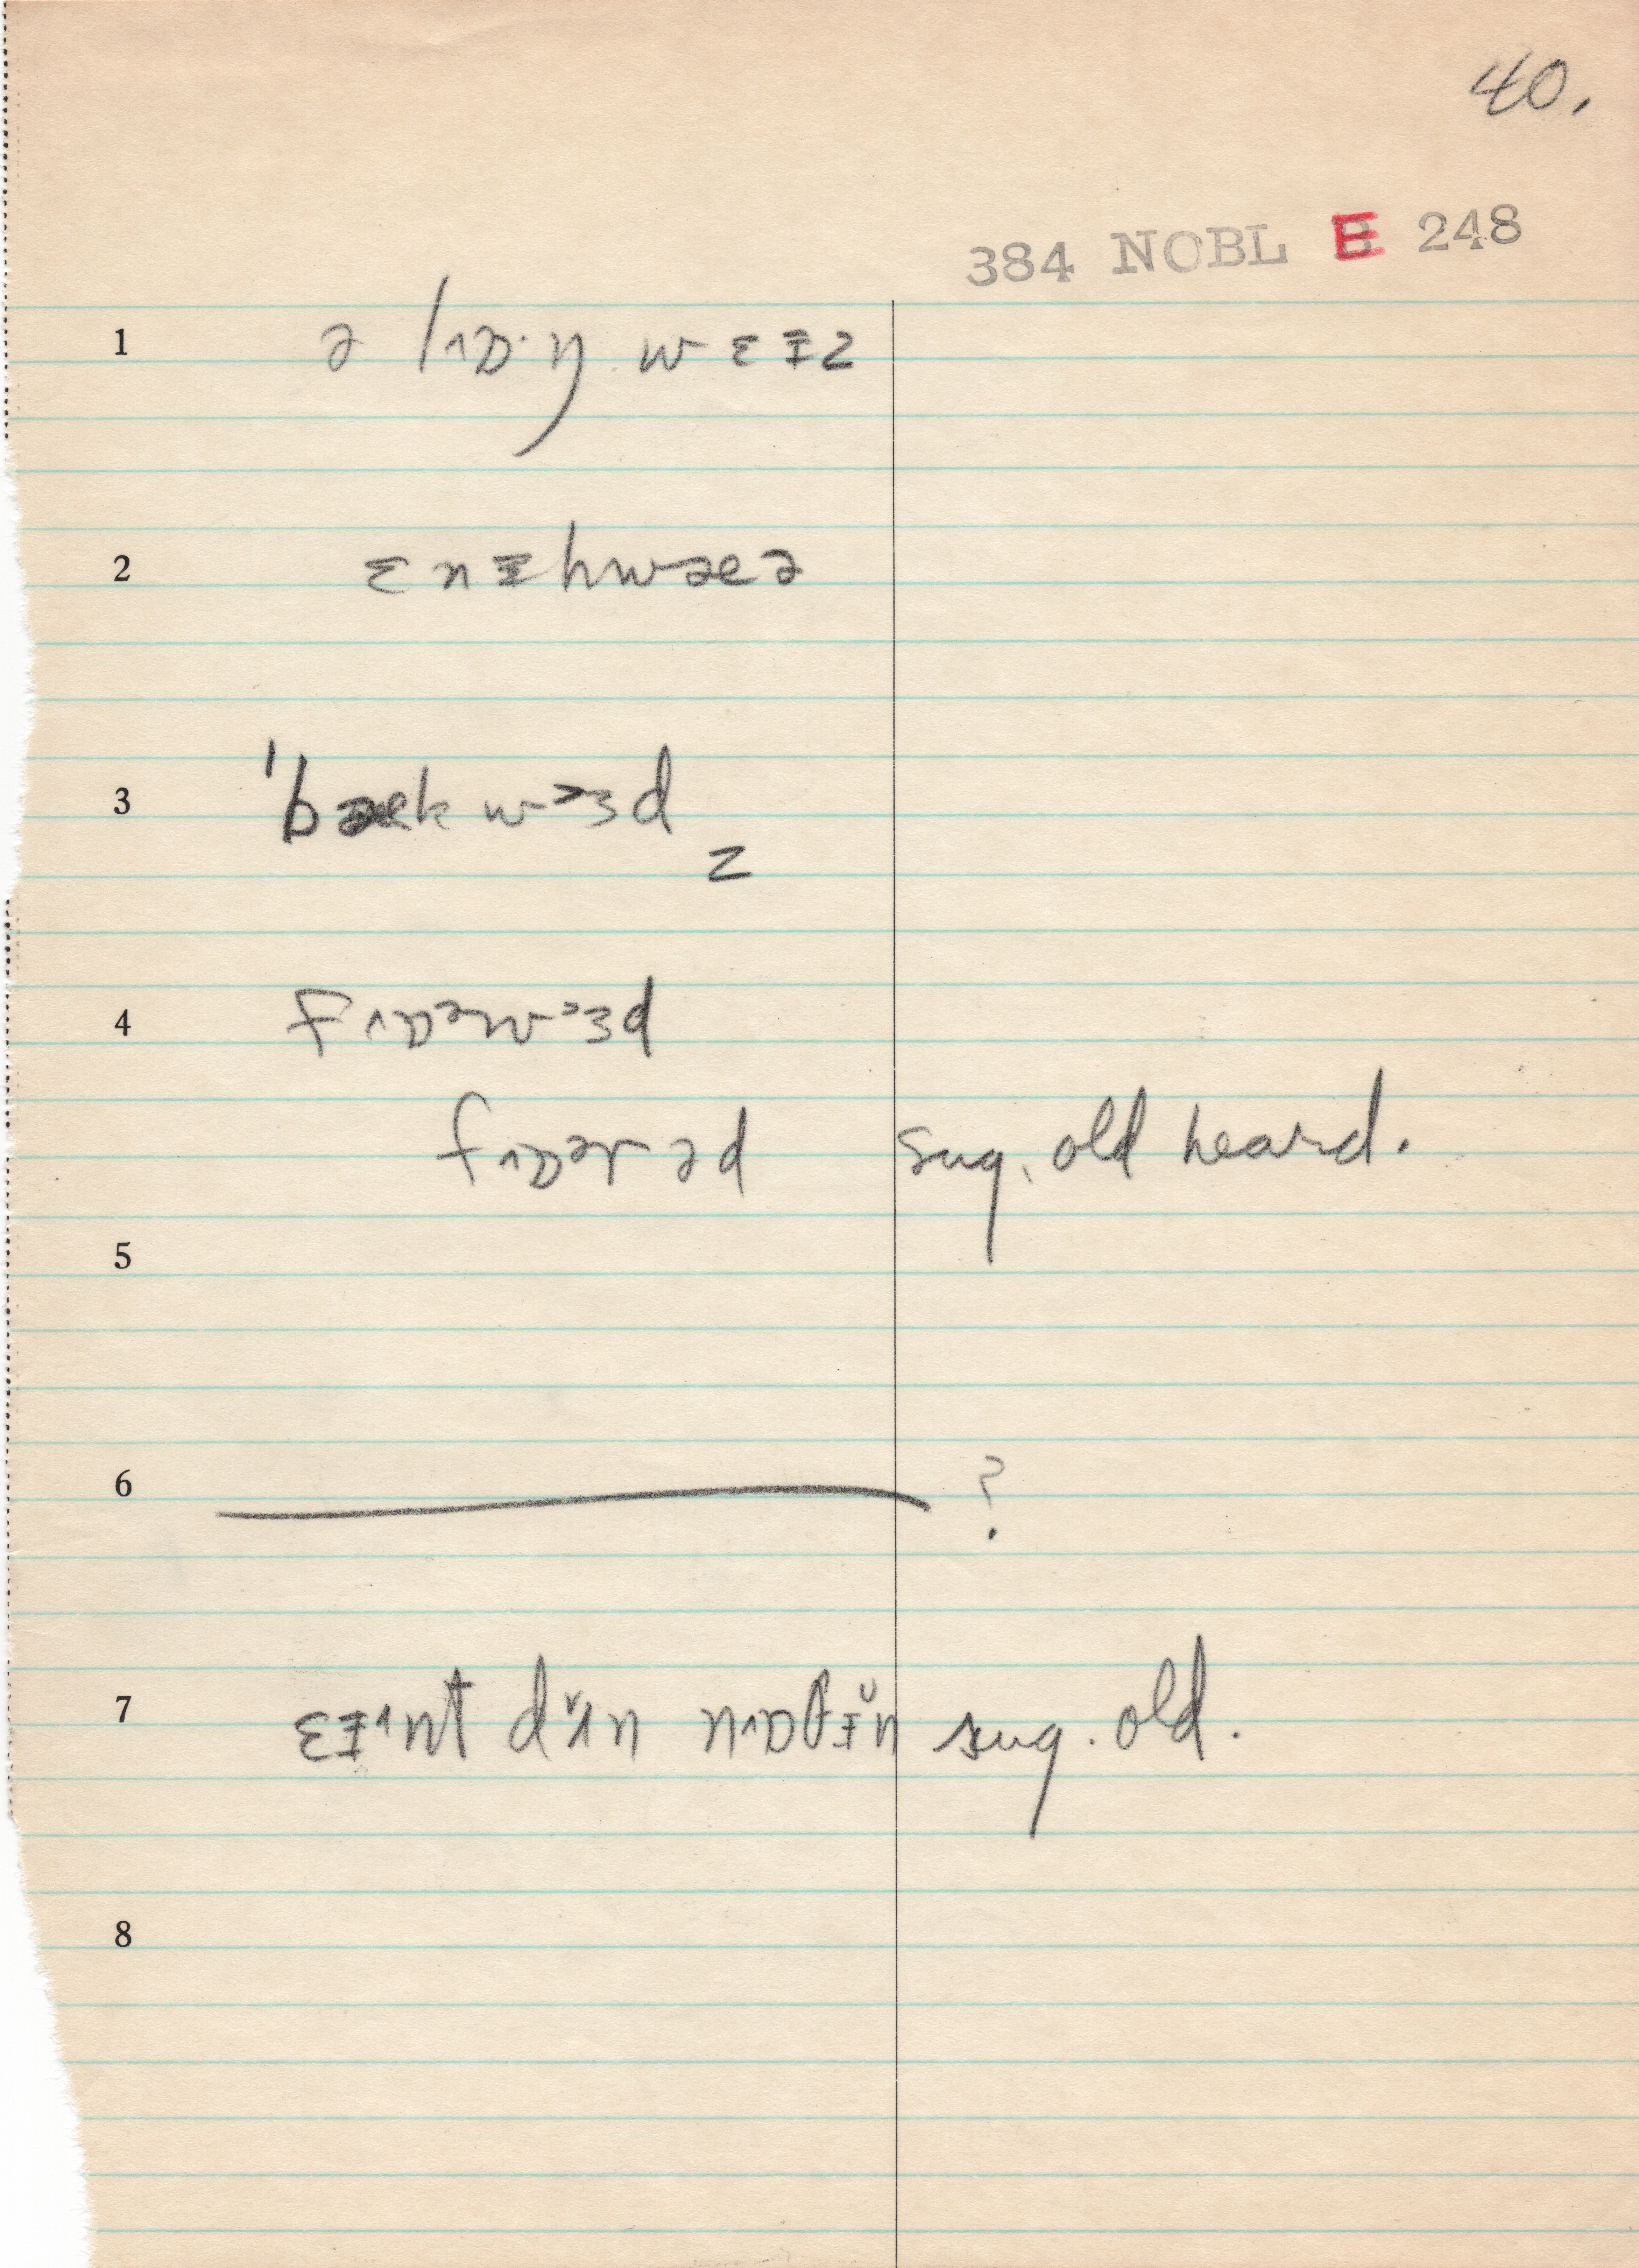 40.
384 NOBL E 248
1 ə lɒ˄·ŋ wɛɪz
2 ɛnɪhwæə
3 'bækwɜd z
4 fɒ˄əwɜd
fɒ˄ərəd sug. old heard.
5
6 ?
7 ɛɪnt dʌ̆n nɒ˄θɪ̆n sug. old.
8